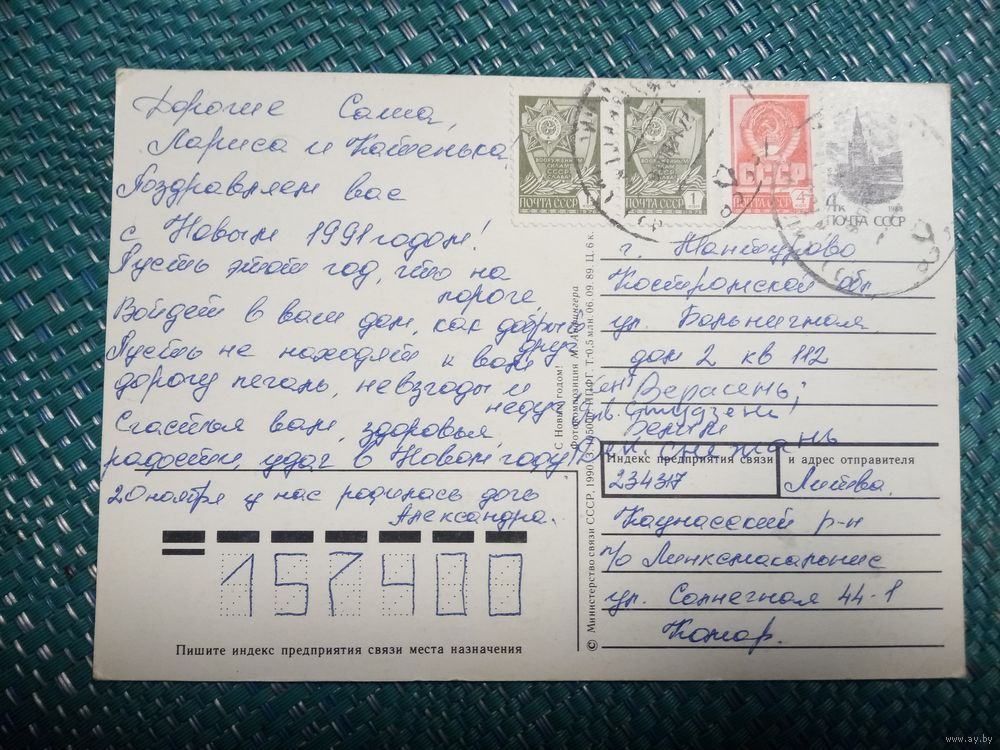 Дорогие Саша,
Лариса и Катенька
Поздравляем вас
с Новым 1991 годом!
Пусть этот год, что на
пороге,
Войдет в ваш дом, как добрый
друг
Пусть не находят к вам
дорогу печаль, невзгоды и
недуг
Счастья вам, здоровья,
радости, удач в Новом году!
20 ноября у нас родилась дочь
Александра.
157400
Пишите индекс предприятия связи места назначения
ВООРУЖЕННЫМ
СИЛАМ
СССР
СЛАВА!
ПОЧТА СССР 1
ВООРУЖЕННЫМ
СИЛАМ
СССР
СЛАВА!
ПОЧТА СССР 1
СССР
ПОЧТА СССР 4
4к 1988
ПОЧТА СССР
С Новым годом!
© Министерство связи СССР, 1990. ППФГ. Т. 0,5 млн. 06.09.89. Ц. 6 к.
г. Мантурово
Костромской обл
ул. Больничная
дом 2 кв 112
Верасень;
Студзень
Индекс предприятия связи и адрес отправителя
234317 Литва.
Каунасский р-н
п/о Линксмакальнис
ул. Солнечная 44-1
Комар.
www.ay.by